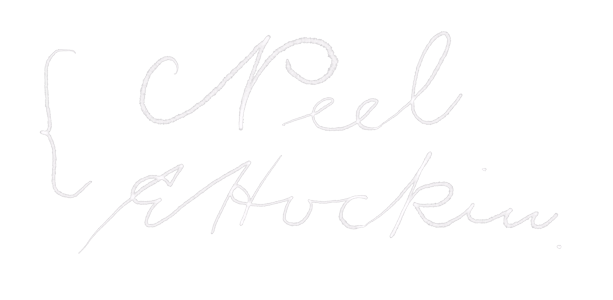 { Peel
E Hockin.